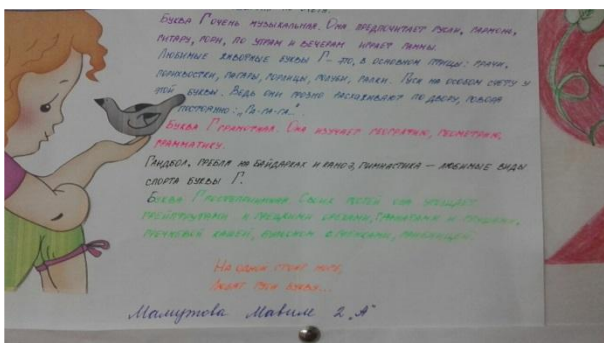 Буква Г очень музыкальная. Она предпочитает гусли, гармонь,
гитару, горн, по утрам и вечерам играет гаммы.
Любимые животные буквы Г – это, в основном птицы: грачи,
горихвостки, гагары, горлицы, голуби, галки. Гуси на особом счету у
этой буквы. Ведь они грозно расхаживают по двору, говоря
"Га-га-га.."
Буква Г грамотная. Она изучает географию, геометрию,
грамматику.
Гандбол, гребля на байдарках и каноэ, гимнастика – любимые виды
спорта буквы Г.
Буква Г гостеприимная. Своих гостей она угощает
грейпфрутами и грецкими орехами, гранатами и грушами,
гречневой кашей,
На одной стоит ноге,
Мамутова Мавиле 2 "А"